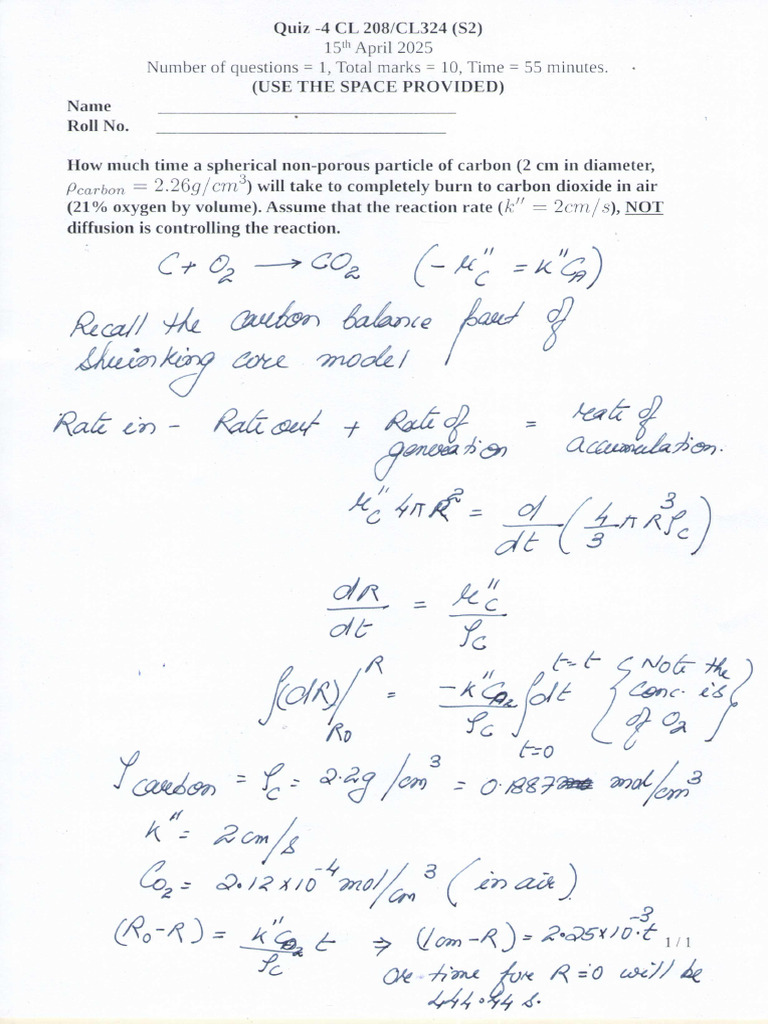 Quiz -4 CL 208/CL324 (S2)
15th April 2025
Number of questions = 1, Total marks = 10, Time = 55 minutes.
(USE THE SPACE PROVIDED)
Name
Roll No.
How much time a spherical non-porous particle of carbon (2 cm in diameter,
ρcarbon = 2.26g/cm³) will take to completely burn to carbon dioxide in air
(21% oxygen by volume). Assume that the reaction rate (k'' = 2cm/s), NOT
diffusion is controlling the reaction.
C + O₂ → CO₂ (-r''C = k''CA)
Recall the carbon balance part of
Shrinking core model
Rate in - Rate out + Rate of generation = rate of accumulation.
r''C 4πR² = d/dt (4/3 πR³ρC)
dR/dt = r''C/ρC
∫(dR)|R R₀ = -k''CO₂/ρC ∫dt t=t t=0 {Note the conc. is of O₂}
ρcarbon = ρC = 2.2g/cm³ = 0.1887 mol/cm³
k'' = 2cm/s
CO₂ = 2.12×10⁻⁴ mol/cm³ (in air)
(R₀-R) = k''CO₂/ρC t ⇒ (1cm-R) = 2.25×10⁻³t
1 / 1
or time for R=0 will be
444.44 s.